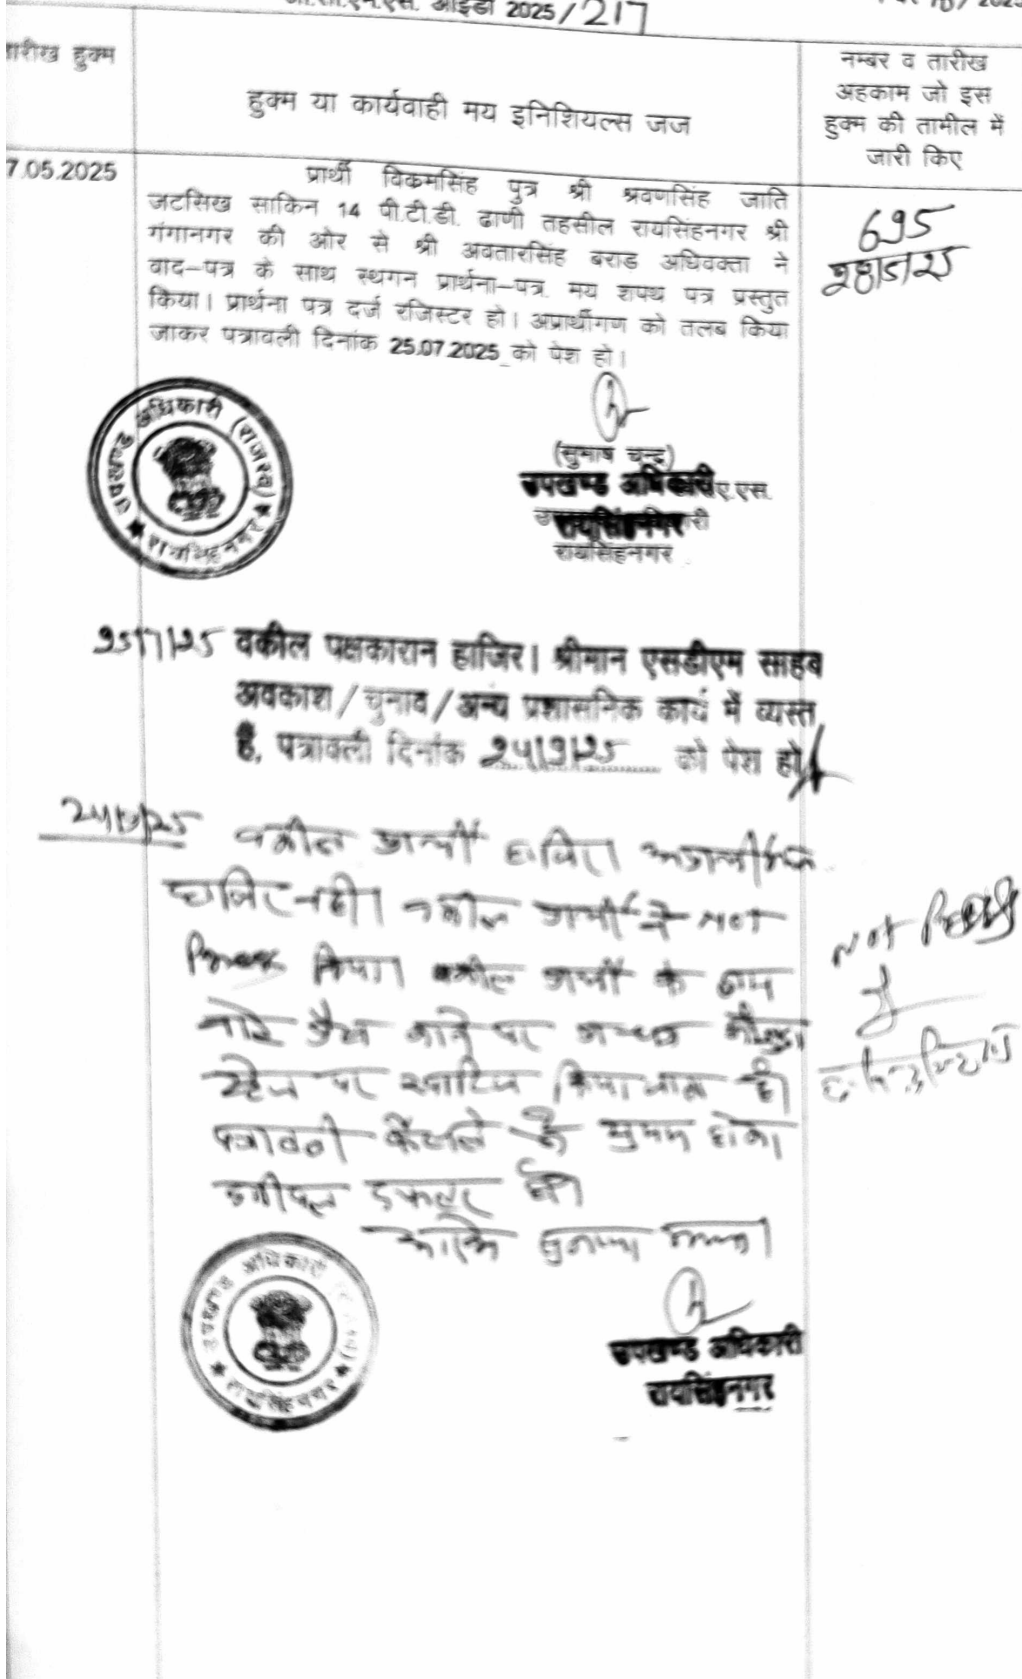 आर.सी.एम.एस. आईडी 2025/217
2025
तारीख हुक्म
हुक्म या कार्यवाही मय इनिशियल्स जज
नम्बर व तारीख
अहकाम जो इस
हुक्म की तामील में
जारी किए
7.05.2025
प्रार्थी विक्रमसिंह पुत्र श्री श्रवणसिंह जाति
जटसिख साकिन 14 पी.टी.डी. ढाणी तहसील रायसिंहनगर श्री
गंगानगर की ओर से श्री अवतारसिंह बराड अधिवक्ता ने
वाद-पत्र के साथ स्थगन प्रार्थना-पत्र मय शपथ पत्र प्रस्तुत
किया। प्रार्थना पत्र दर्ज रजिस्टर हो। अप्रार्थीगण को तलब किया
जाकर पत्रावली दिनांक 25.07.2025 को पेश हो।
695
28/5/25
उपखण्ड अधिकारी (राजस्व)
रायसिंहनगर
(सुभाष चन्द्र)
उपखण्ड अधिकारी ए.एस.
रायसिंहनगर
रायसिंहनगर
25/7/25 वकील पक्षकारान हाजिर। श्रीमान एसडीएम साहब
अवकाश/चुनाव/अन्य प्रशासनिक कार्य में व्यस्त
है, पत्रावली दिनांक 24/9/25 को पेश हो
24/9/25 वकील प्रार्थी हाजिर।
हाजिर नही। वकील प्रार्थी ने Not
Press किया। वकील प्रार्थी के
पर
पर खारिज किया जाता है।
पत्रावली फैसले में शुमार होकर
दफ्तर हो।
सुनाया गया।
Not Press
उपखण्ड अधिकारी
रायसिंहनगर
उपखण्ड अधिकारी
रायसिंहनगर